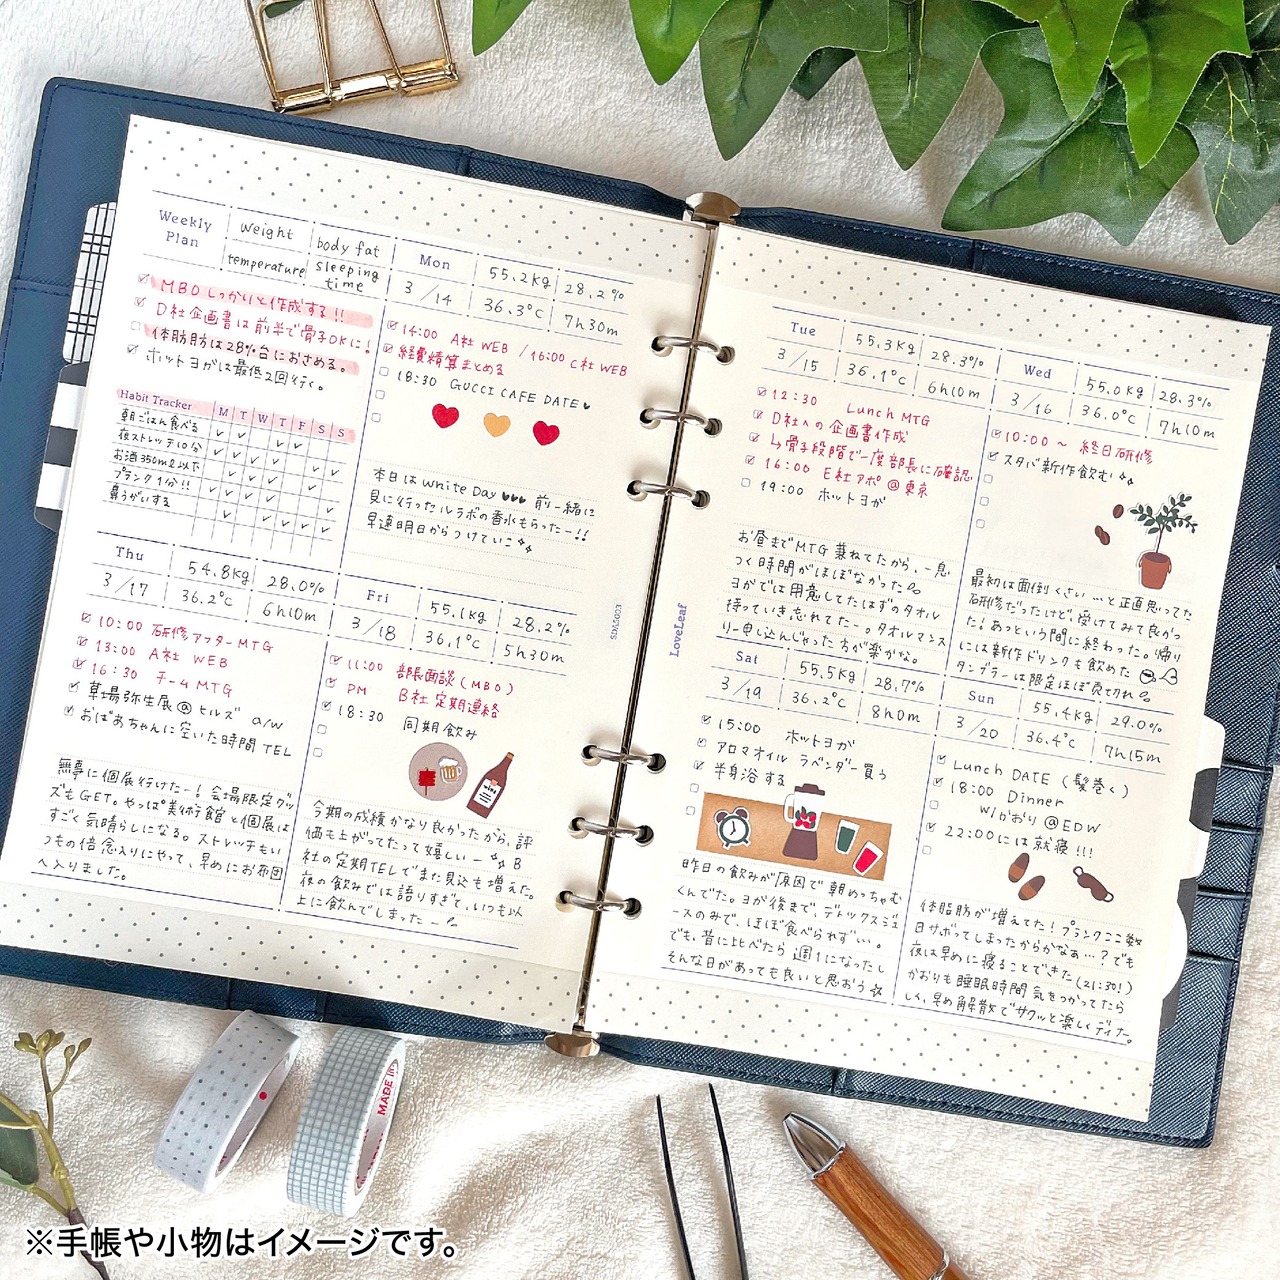 Weekly Plan
weight
body fat
temperature
sleeping time
MBO しっかりと作成する!!
D社企画書は前半で骨子OKに!
体脂肪は28%台におさめる。
ホットヨガは最低2回行く。
Habit Tracker M T W T F S S
朝ごはん食べる
夜ストレッチ10分
お酒350ml以下
プランク1分!!
鼻うがいする
Mon 55.2kg 28.2%
3/14 36.3°C 7h30m
14:00 A社 WEB / 16:00 C社 WEB
経費精算まとめる
18:30 GUCCI CAFE DATE♥
本日は White Day ♥♥♥ 前一緒に
見に行ったルラボの香水もらったー!!
早速明日からつけていこ
Thu 54.8kg 28.0%
3/17 36.2°C 6h10m
10:00 研修アフターMTG
13:00 A社 WEB
16:30 チームMTG
草場弥生展@ヒルズ a/w
おばあちゃんに空いた時間 TEL
無事に個展行けたー! 会場限定グッ
ズもGET。やっぱ美術館と個展は
すごく気晴らしになる。ストレッチもい
つもの倍念入りにやって、早めにお布団
へ入りました。
Fri 55.1kg 28.2%
3/18 36.1°C 5h30m
11:00 部長面談(MBO)
PM B社定期連絡
18:30 同期飲み
今期の成績かなり良かったから、評
価も上がってたって嬉しいー B
社の定期TELでまた見込も増えた。
夜の飲みでは語りすぎて、いつも以
上に飲んでしまったー
SDA5003
LoveLeaf
Tue 55.3kg 28.3%
3/15 36.1°C 6h10m
12:30 Lunch MTG
D社への企画書作成
↳骨子段階で一度部長に確認
16:00 E社アポ@東京
19:00 ホットヨガ
お昼までMTG兼ねてたから、一息
つく時間がほぼなかった
ヨガでは用意してたはずのタオル
持っていき忘れてたー。タオルマンス
リー申し込んじゃった方が楽かな。
Wed 55.0kg 28.3%
3/16 36.0°C 7h10m
10:00〜 終日研修
スタバ新作飲む
最初は面倒くさい…と正直思ってた
研修だったけど、受けてみて良かっ
た!あっという間に終わった。帰り
には新作ドリンクも飲めた
タンブラーは限定ほぼ売切れ
Sat 55.5kg 28.7%
3/19 36.2°C 8h0m
15:00 ホットヨガ
アロマオイル ラベンダー買う
半身浴する
昨日の飲みが原因で朝めっちゃむ
くんでた。ヨガ後まで、デトックスジュ
ースのみで、ほぼ食べられずい。
でも、昔に比べたら週1になったし
そんな日があっても良いと思おう
Sun 55.4kg 29.0%
3/20 36.4°C 7h15m
Lunch DATE (髪巻く)
18:00 Dinner
w/かおり @EDW
22:00には就寝!!!
体脂肪が増えてた!プランクここ数
日サボってしまったからかなぁ…?でも
夜は早めに寝ることできた(21:30!)
かおりも睡眠時間気をつかってたら
しく、早め解散でサクッと楽しくディた。
MADE IN
※手帳や小物はイメージです。